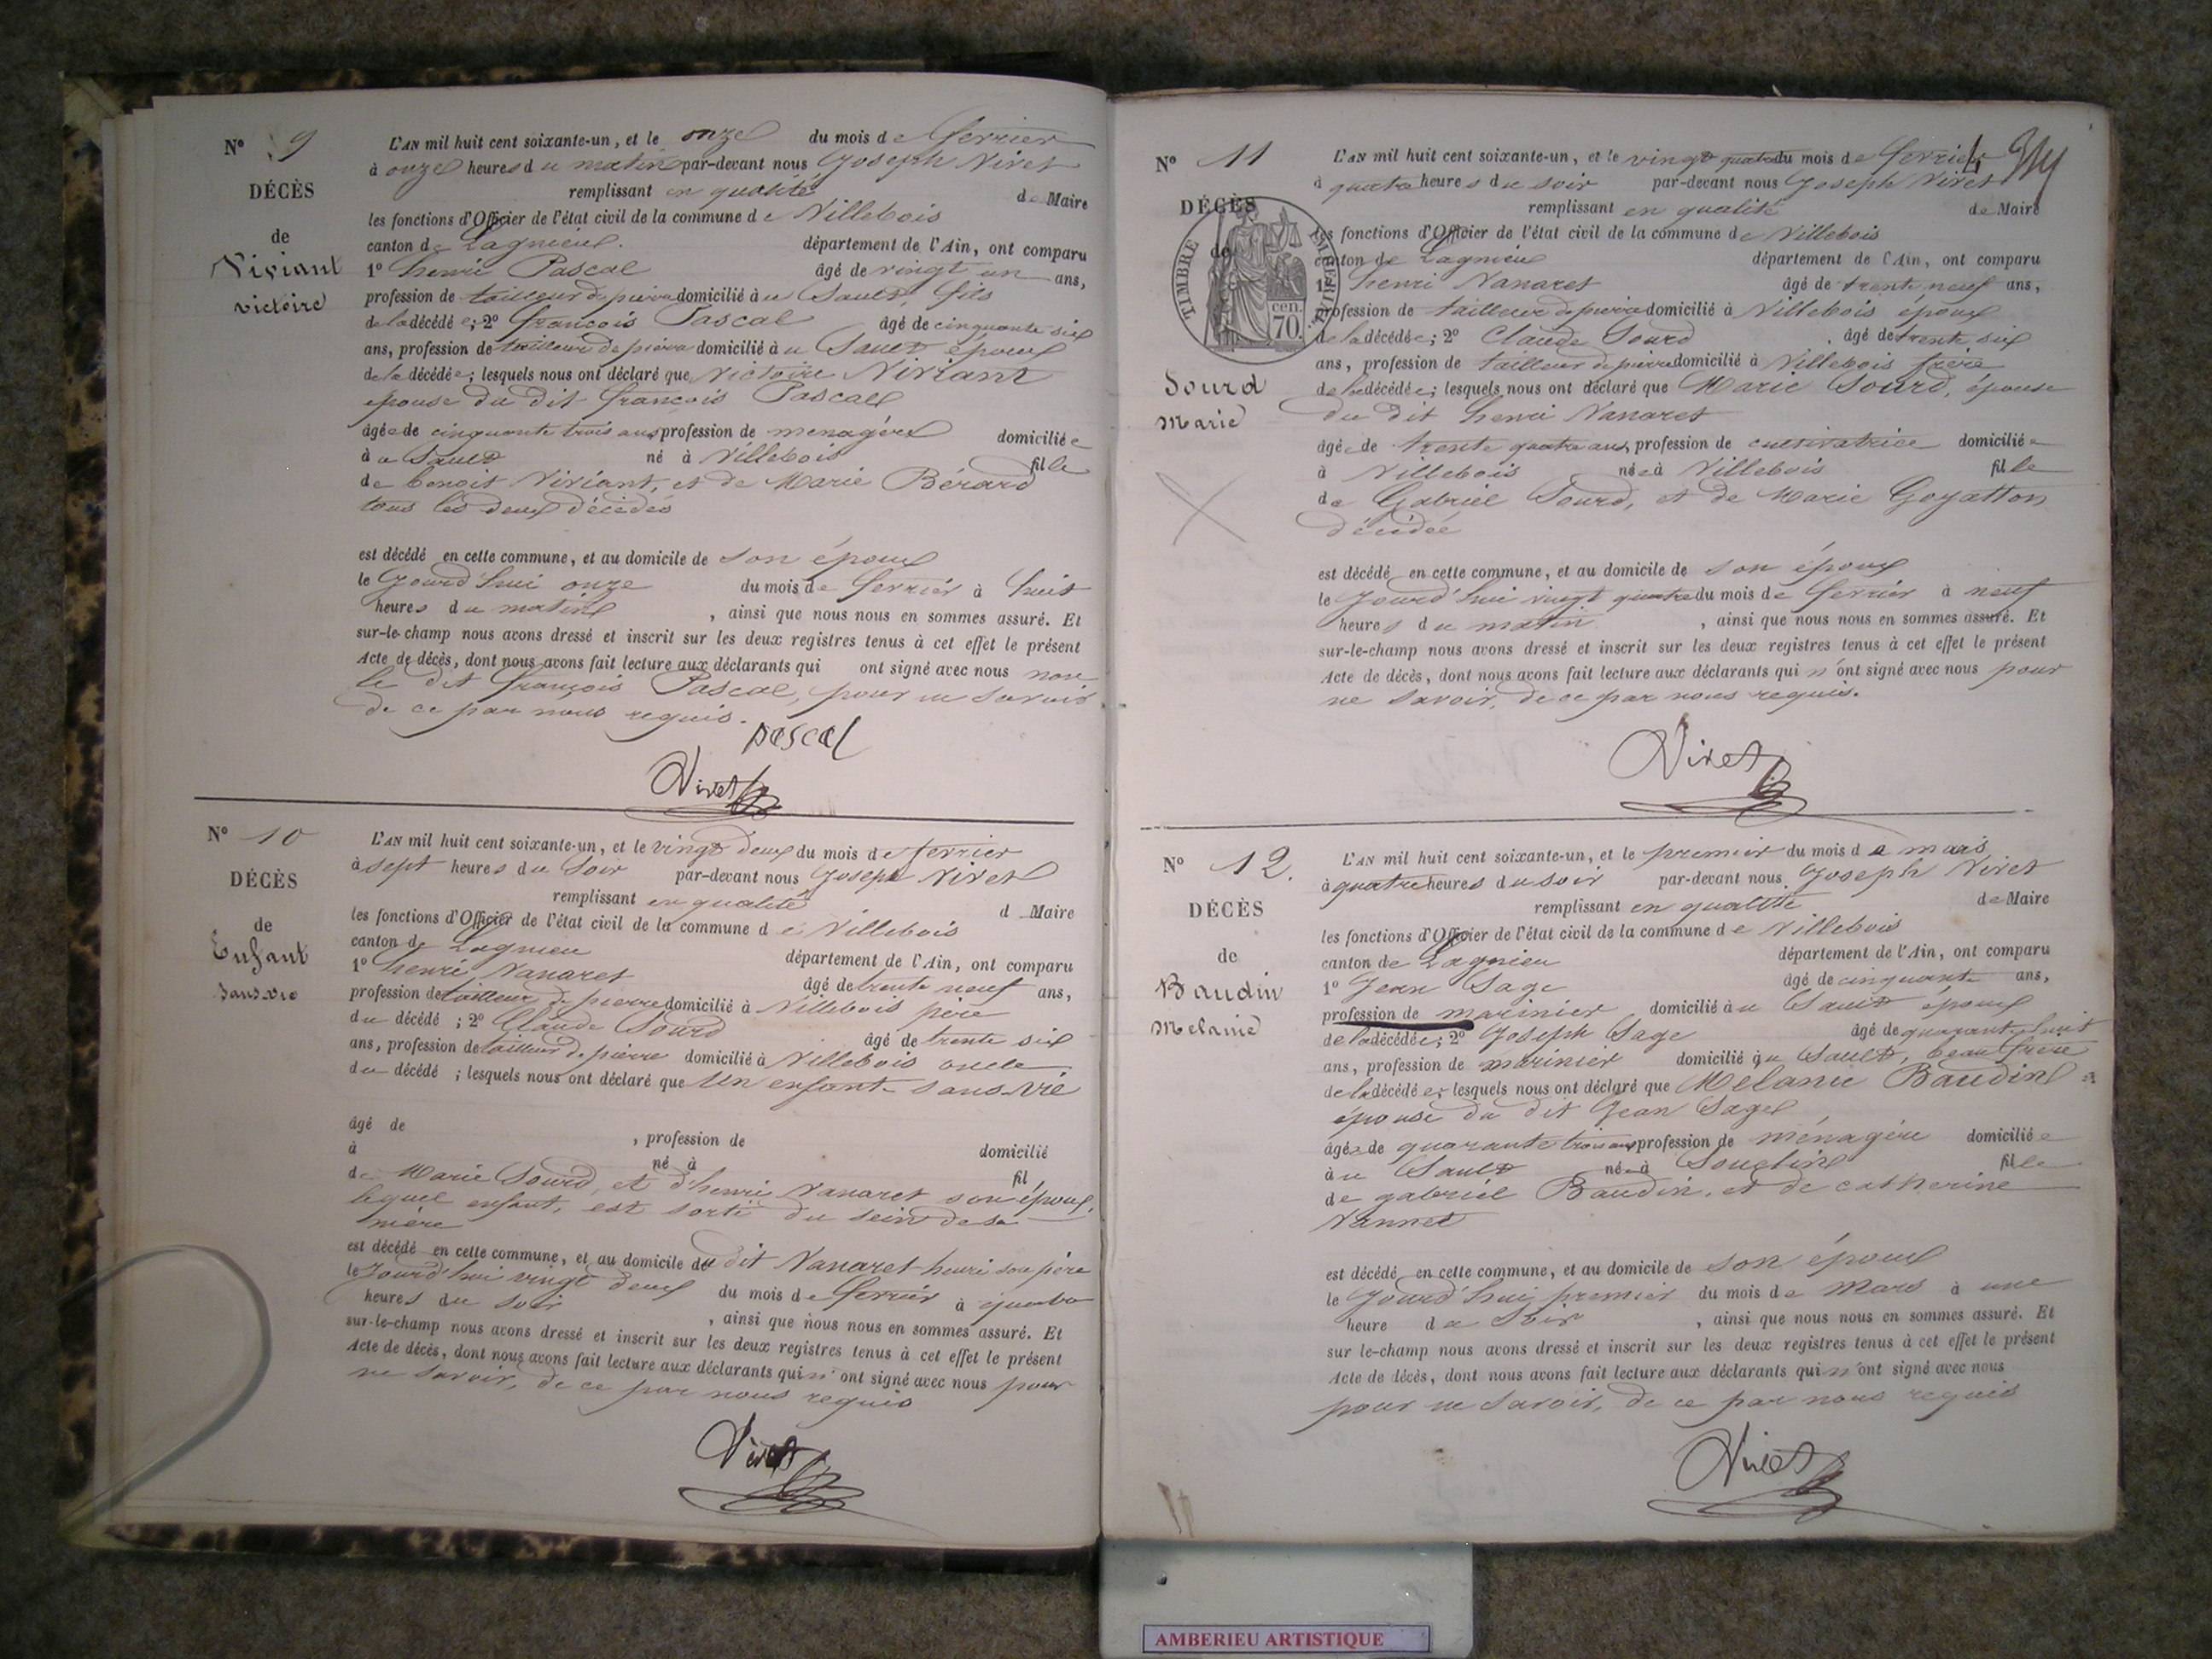 N° 9
DÉCÈS
de
Viviant
victoire
L'AN mil huit cent soixante-un, et le onze du mois de fevrier
à onze heures du matin par-devant nous Joseph Vivet
remplissant en qualité de Maire
les fonctions d'Officier de l'état civil de la commune de Villebois
canton de Lagnieu. département de l'Ain, ont comparu
1° henri Pascal âgé de vingt un ans,
profession de tailleur de pierre domicilié à u Sault, fils
de la décédée; 2° francois Pascal âgé de cinquante six
ans, profession de tailleur de pierre domicilié à u Sault époux
de la décédée; lesquels nous ont déclaré que Victoire Viviant
épouse du dit francois Pascal
âgée de cinquante trois ans, profession de menagère domiciliée
à u Sault né à Villebois fille
de benoit Viviant, et de Marie Bérard
tous les deux décédés
est décédé en cette commune, et au domicile de son époux
le Jourd'hui onze du mois de fevrier à huit
heures du matin, ainsi que nous nous en sommes assuré. Et
sur-le-champ nous avons dressé et inscrit sur les deux registres tenus à cet effet le présent
Acte de décès, dont nous avons fait lecture aux déclarants qui ont signé avec nous non
le dit françois Pascal, pour ne savoir
de ce par nous requis.
pascal
Vivet
N° 10
DÉCÈS
de
Enfant
sans vie
L'AN mil huit cent soixante-un, et le vingt deux du mois de fevrier
à sept heures du Soir par-devant nous Joseph Vivet
remplissant en qualité d Maire
les fonctions d'Officier de l'état civil de la commune de Villebois
canton de Lagnieu département de l'Ain, ont comparu
1° henri Vanaret âgé de trente neuf ans,
profession de tailleur de pierre domicilié à Villebois père
du décédé ; 2° Claude Sourd âgé de trente six
ans, profession de tailleur de pierre domicilié à Villebois oncle
du décédé ; lesquels nous ont déclaré que Un enfant sans vie
âgé de , profession de domicilié
à né à fil
de Marie Sourd, et d'henri Vanaret son époux,
lequel enfant, est sorti du sein de sa
mère
est décédé en cette commune, et au domicile du dit Vanaret henri son père
le Jourd'hui vingt deux du mois de fevrier à quatre
heures du soir, ainsi que nous nous en sommes assuré. Et
sur-le-champ nous avons dressé et inscrit sur les deux registres tenus à cet effet le présent
Acte de décès, dont nous avons fait lecture aux déclarants qui n'ont signé avec nous pour
ne savoir, de ce par nous requis
Vivet
N° 11
DÉCÈS
de
TIMBRE IMPÉRIAL
70 cen.
Sourd
Marie
L'AN mil huit cent soixante-un, et le vingt quatre du mois de fevrier
à quatre heures du soir par-devant nous Joseph Vivet
remplissant en qualité de Maire
les fonctions d'Officier de l'état civil de la commune de Villebois
canton de Lagnieu département de l'Ain, ont comparu
1° henri Vanaret âgé de trente neuf ans,
profession de tailleur de pierre domicilié à Villebois époux
de la décédée; 2° Claude Sourd âgé de trente six
ans, profession de tailleur de pierre domicilié à Villebois frère
de la décédée; lesquels nous ont déclaré que Marie Sourd, épouse
du dit henri Vanaret
âgée de trente quatre ans, profession de cultivatrice domiciliée
à Villebois née à Villebois fille
de Gabriel Sourd, et de Marie Goyatton
décédée
est décédé en cette commune, et au domicile de son époux
le Jourd'hui vingt quatre du mois de fevrier à neuf
heures du matin, ainsi que nous nous en sommes assuré. Et
sur-le-champ nous avons dressé et inscrit sur les deux registres tenus à cet effet le présent
Acte de décès, dont nous avons fait lecture aux déclarants qui n'ont signé avec nous pour
ne savoir, de ce par nous requis.
Vivet
N° 12.
DÉCÈS
de
Baudin
Melanie
L'AN mil huit cent soixante-un, et le premier du mois de mars
à quatre heures du soir par-devant nous Joseph Vivet
remplissant en qualité de Maire
les fonctions d'Officier de l'état civil de la commune de Villebois
canton de Lagnieu département de l'Ain, ont comparu
1° Jean Sage âgé de cinquante ans,
profession de marinier domicilié à u Sault époux
de la décédée; 2° Joseph Sage âgé de quarante huit
ans, profession de marinier domicilié à u Sault, beau frère
de la décédée; lesquels nous ont déclaré que Melanie Baudin
épouse du dit Jean Sage
âgée de quarante trois ans, profession de ménagère domiciliée
à u Sault née à Souclin fille
de gabriel Baudin, et de catherine
Vannet
est décédé en cette commune, et au domicile de son époux
le Jourd'hui premier du mois de Mars à une
heure du Soir, ainsi que nous nous en sommes assuré. Et
sur le-champ nous avons dressé et inscrit sur les deux registres tenus à cet effet le présent
Acte de décès, dont nous avons fait lecture aux déclarants qui n'ont signé avec nous
pour ne savoir, de ce par nous requis
Vivet
AMBERIEU ARTISTIQUE